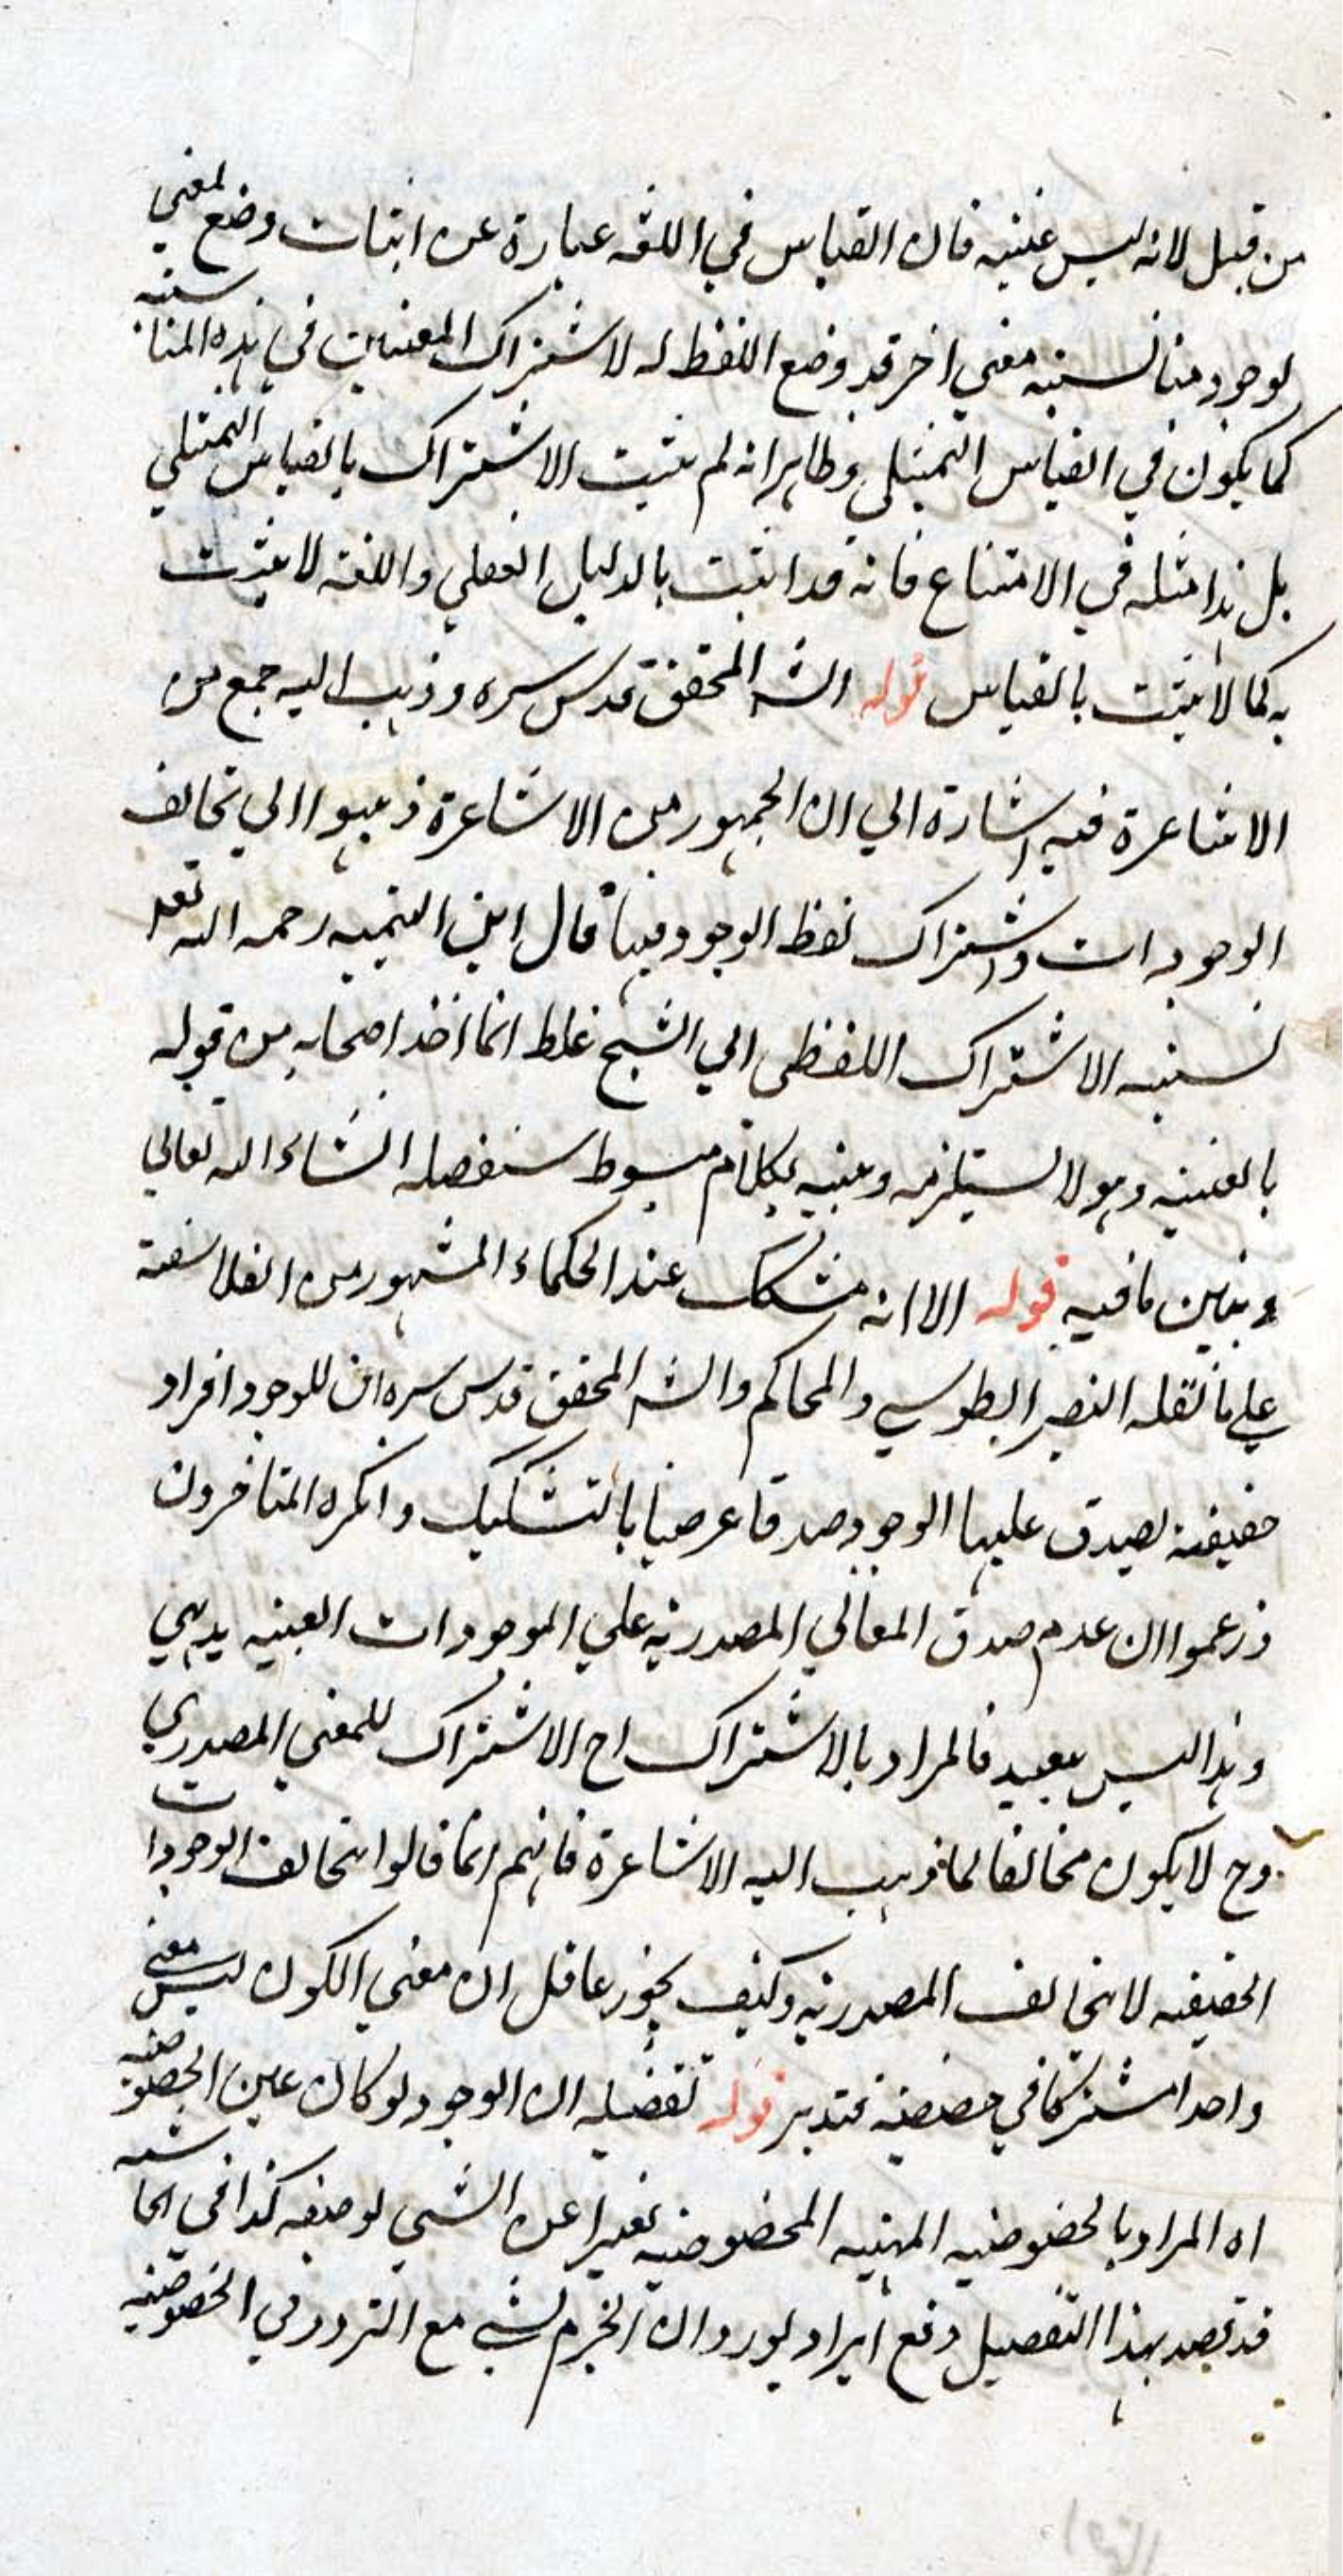 من قبل لانه ليس عينيه فان القياس في اللغة عبارة عن اثبات وضع لمعنى
لوجود مناسبته معنى اخر قد وضع اللفظ له لاشتراك المعنيين في هذه المناسبة
كما يكون في القياس التمثيلي وظاهر انه لم يثبت الاشتراك بالقياس التمثيلي
بل هذا مثله في الامتناع فانه قد اثبت بالدليل العقلي واللغة لا يثبت
به كما لا يثبت بالقياس قوله الشه المحقق قدس سره وذهب اليه جمع من
الاشاعرة فيه اشارة الي ان الجمهور من الاشاعرة ذهبوا الي تخالف
الوجودات واشتراك لفظ الوجود فيها قال ابن التيميه رحمه الله تعه
نسبته الاشتراك اللفظي الي الشيخ غلط انما اخذ اصحابه من قوله
بالعينيه وهو لا يستلزمه وبينه بكلام مبسوط سنفصله انشاء الله تعالي
ونبين ما فيه قوله الا انه مشكك عند الحكماء المشهور من الفلاسفة
علي ما نقله النصير الطوسي والمحاكم والشه المحقق قدس سره ان للوجود افراد
حقيقة يصدق عليها الوجود صدقا عرضيا بالتشكيك وانكره المتاخرون
وزعموا ان عدم صدق المعاني المصدرية علي الموجودات العينيه بديهي
وهذا ليس ببعيد فالمراد بالاشتراك اح الاشتراك للمعنى المصدري
وح لا يكون مخالفا لما ذهب اليه الاشاعرة فانهم انما قالوا بتخالف الوجودات
الحقيقه لا بتخالف المصدرية وكيف يجوز عاقل ان معنى الكون ليس معنى
واحدا مشتركا في حصصه فتدبر قوله تفصيله ان الوجود لو كان عين الخصوصيه
اه المراد بالخصوصيه المهيه المخصوصيه تعبيرا عن الشي لوصفه كذا في الحاشيه
قد قصد بهذا التفصيل دفع ايراد يورد وان الجزم لشي مع التردد في الخصوصيه